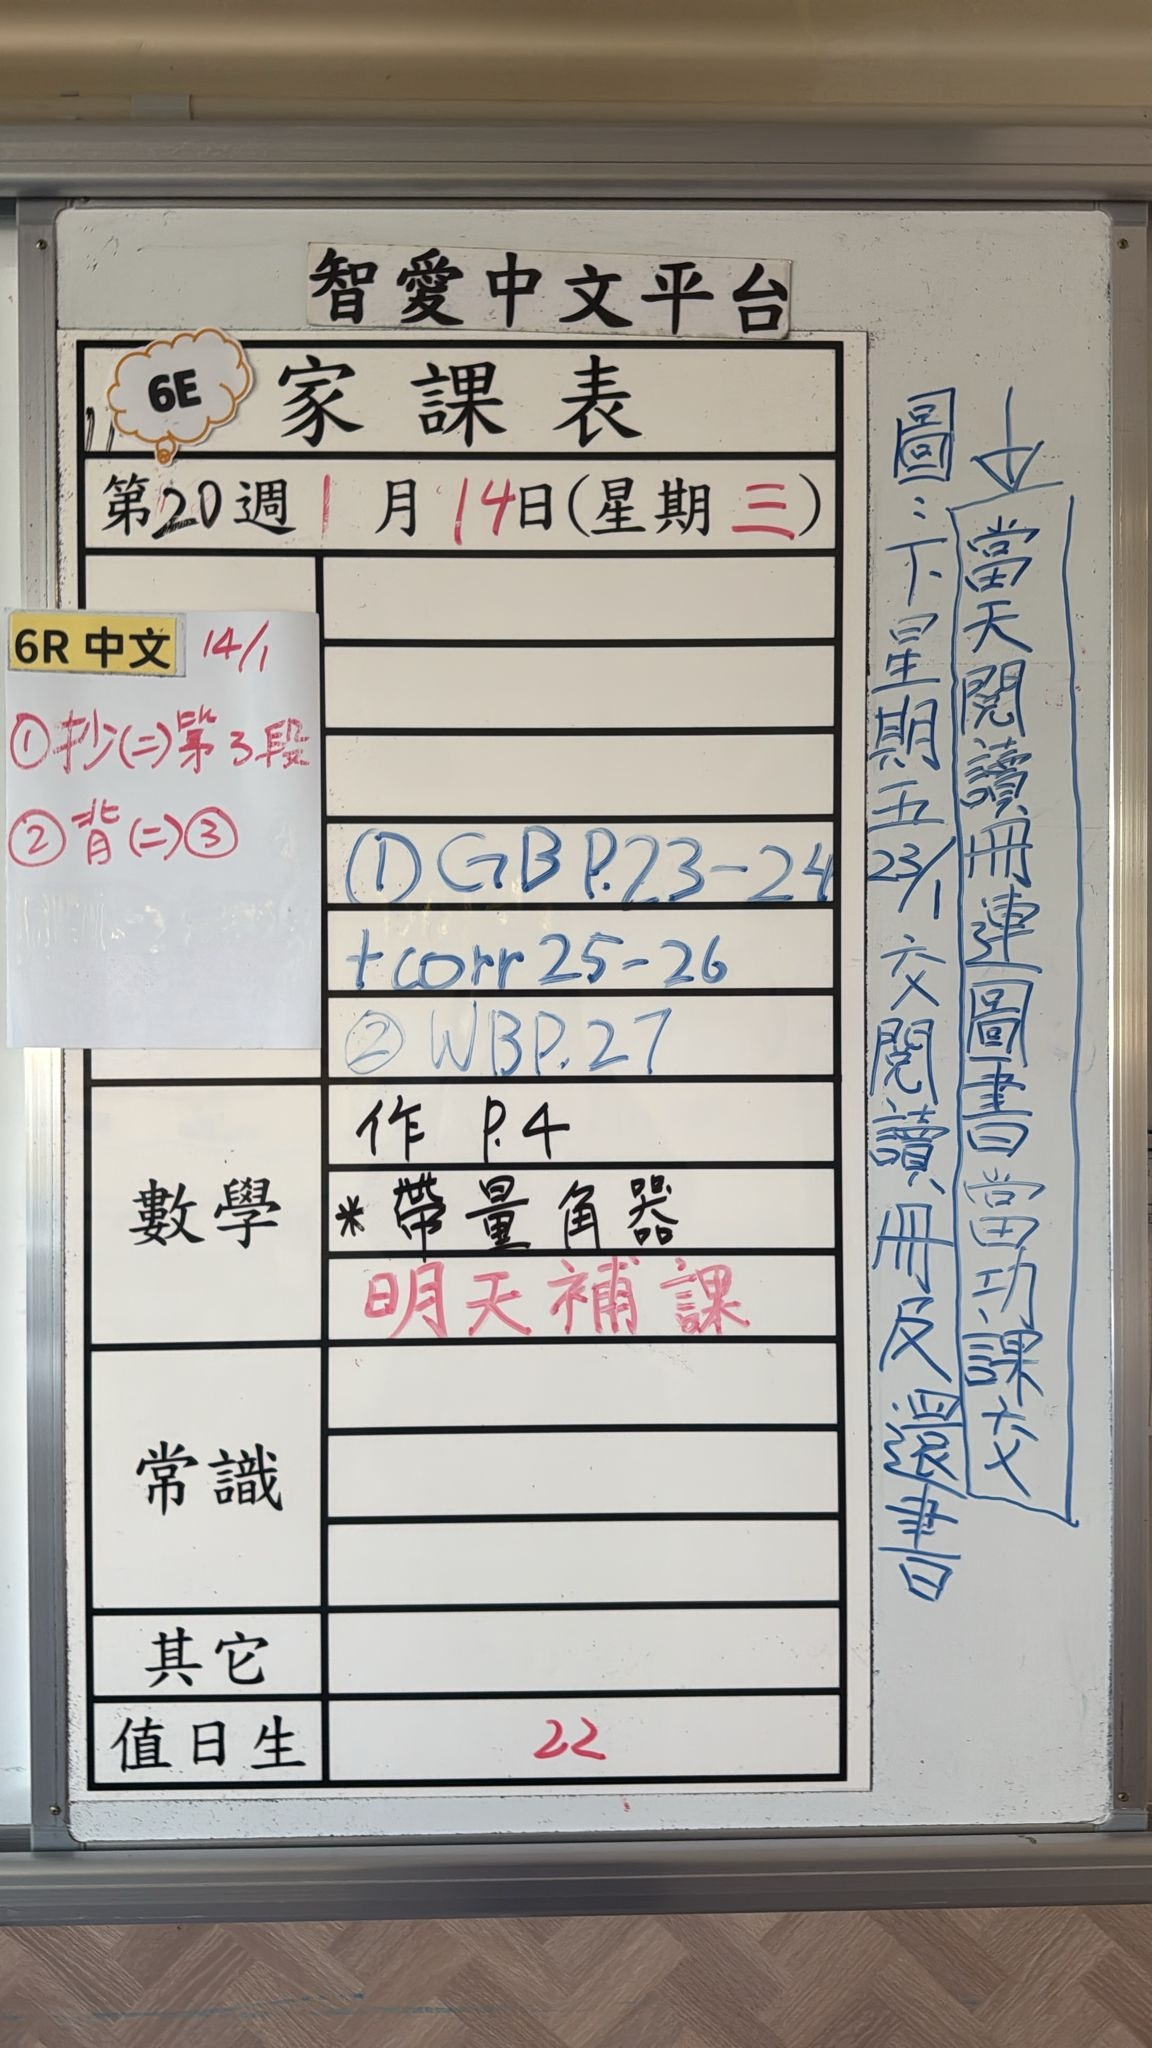 智愛中文平台
6E
家課表
第20週1月14日(星期三)
6R 中文 14/1
①抄(二)第3段
②背(二)③
①GB P.23-24
+corr 25-26
②WB P.27
數學
作 P.4
*帶量角器
明天補課
常識
其它
值日生
22
圖:下星期五23/1交閱讀冊及還書
↓
當天閱讀冊連圖書當功課交